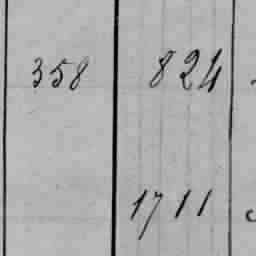 358 824
1711